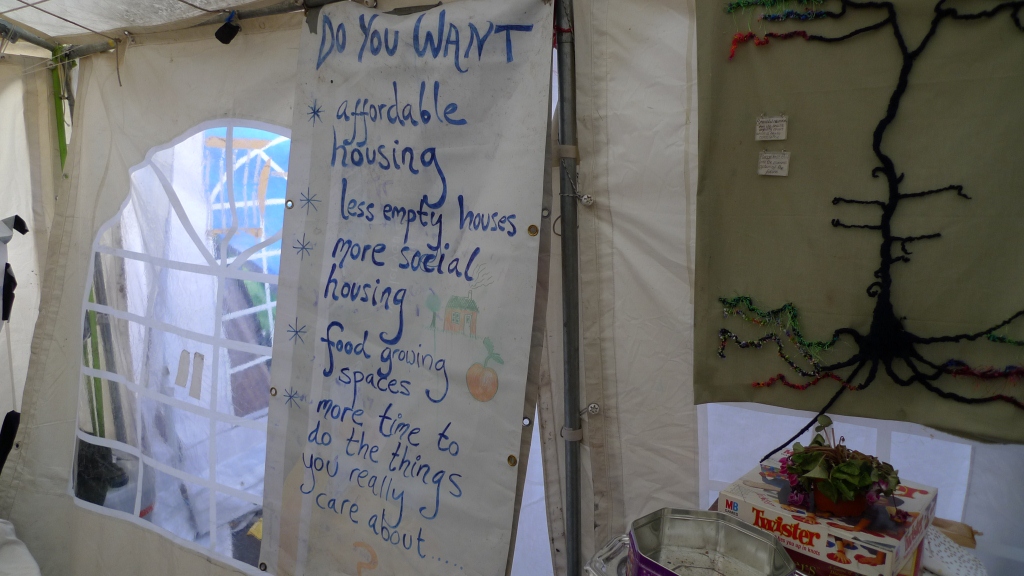 DO YOU WANT
* affordable
housing
* less empty houses
* more social
housing
* food growing
spaces
* more time to
do the things
you really
care about.....
?
MB
Twister